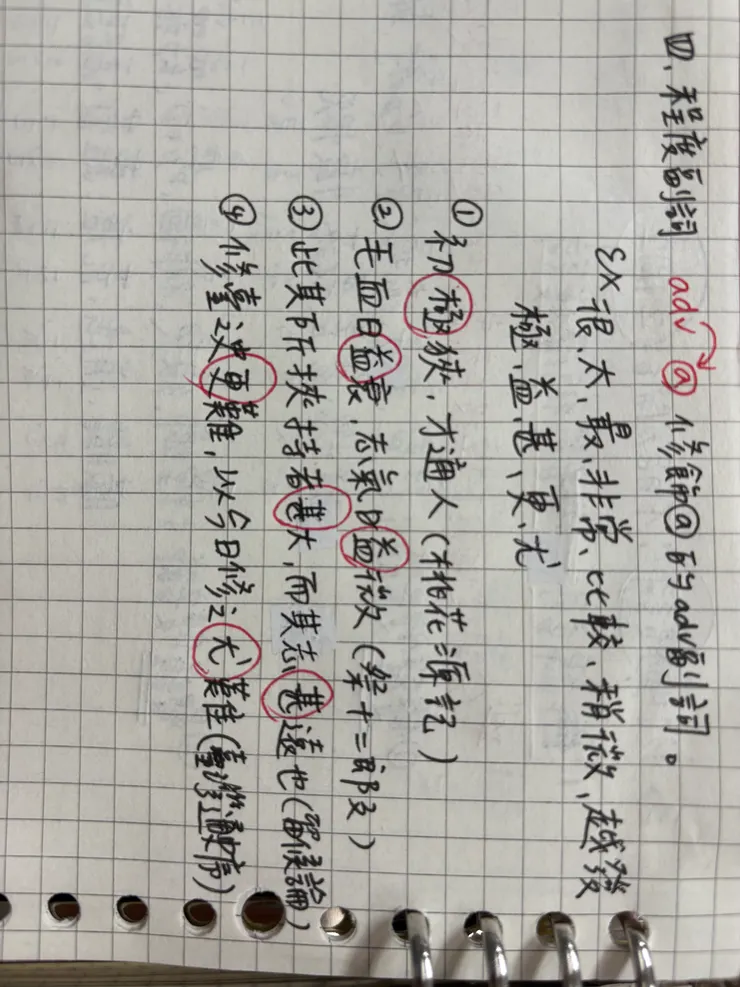 四、程度副詞 adv ⓐ 修飾ⓐ的adv副詞。
EX 很、太、最、非常、比較、稍微、越發
極、益、甚、更、尤
① 初極狹，才通人(桃花源記)
② 毛血日益衰，志氣日益微(祭十二郎文)
③ 此其所挾持者甚大，而其志甚遠也(留侯論)
④ 修臺史更難，以今日修之尤難(臺灣通史序)